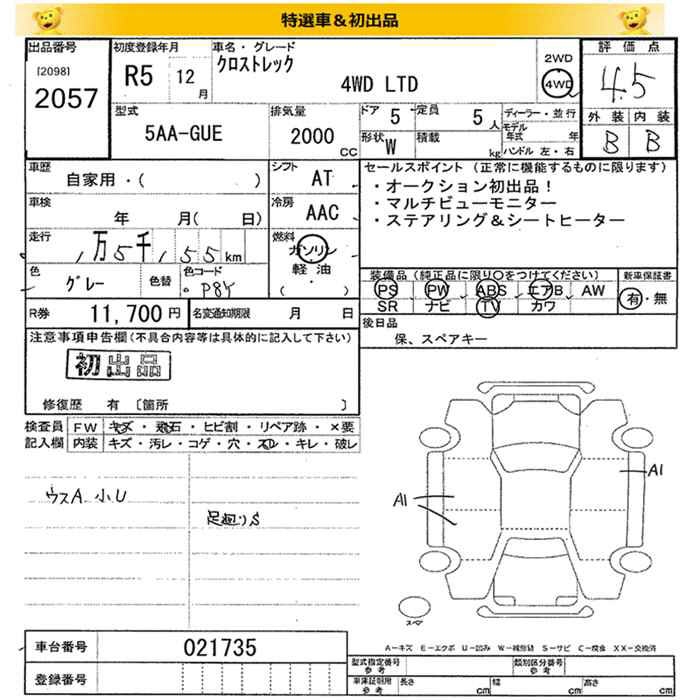 特選車＆初出品
出品番号 [2098] 2057
初度登録年月 R5 12月
車名・グレード クロストレック 4WD LTD
2WD 4WD
評価点 4.5
外装 内装 B B
型式 5AA-GUE
排気量 2000 CC
ドア 5 定員 5人
形状 W 積載 kg
ディーラー・並行
モデル年式 年
ハンドル 左・右
車歴 自家用・( )
シフト AT
車検 年 月( 日)
冷房 AAC
走行 1万5千155km
燃料 ガソリン 軽油 ( ・ )
色 グレー 色替 色コード P8Y
R券 11,700円 名変通知期限 月 日
セールスポイント (正常に機能するものに限ります)
・オークション初出品！
・マルチビューモニター
・ステアリング&シートヒーター
装備品(純正品に限り○をつけてください) 新車保証書
PS PW ABS エアB AW 有・無
SR ナビ TV カワ
後日品
保、スペアキー
注意事項申告欄(不具合内容等は具体的に記入して下さい)
初出品
修復歴 有 〔箇所 〕
検査員 FW キズ・飛石・ヒビ割・リペア跡・×要
記入欄 内装 キズ・汚レ・コゲ・穴・スレ・キレ・破レ
ウスA 小U
足廻りS
A1
A1
スペア
A－キズ E－エクボ U－凹み W－補修跡 S－サビ C－腐食 XX－交換済
車台番号 021735
登録番号
型式指定番号 参考 類別区分番号 参考
車庫証明用 参考 長さ cm 幅 cm 高さ cm